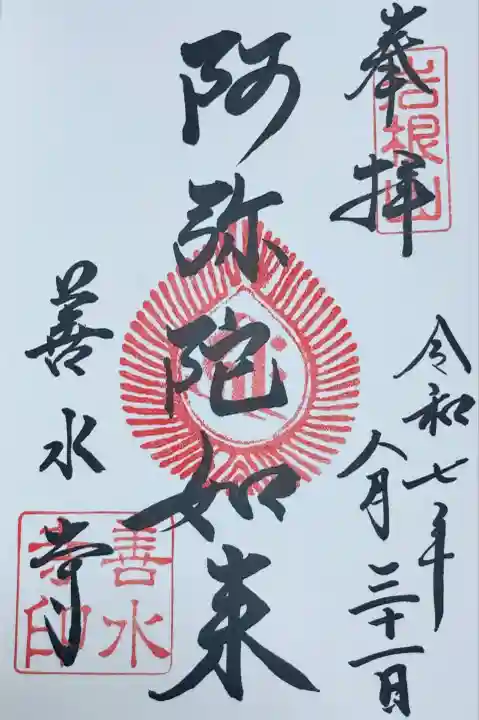 奉拝
岩根山
令和七年
八月三十一日
阿弥陀如来
善水寺
善水寺印